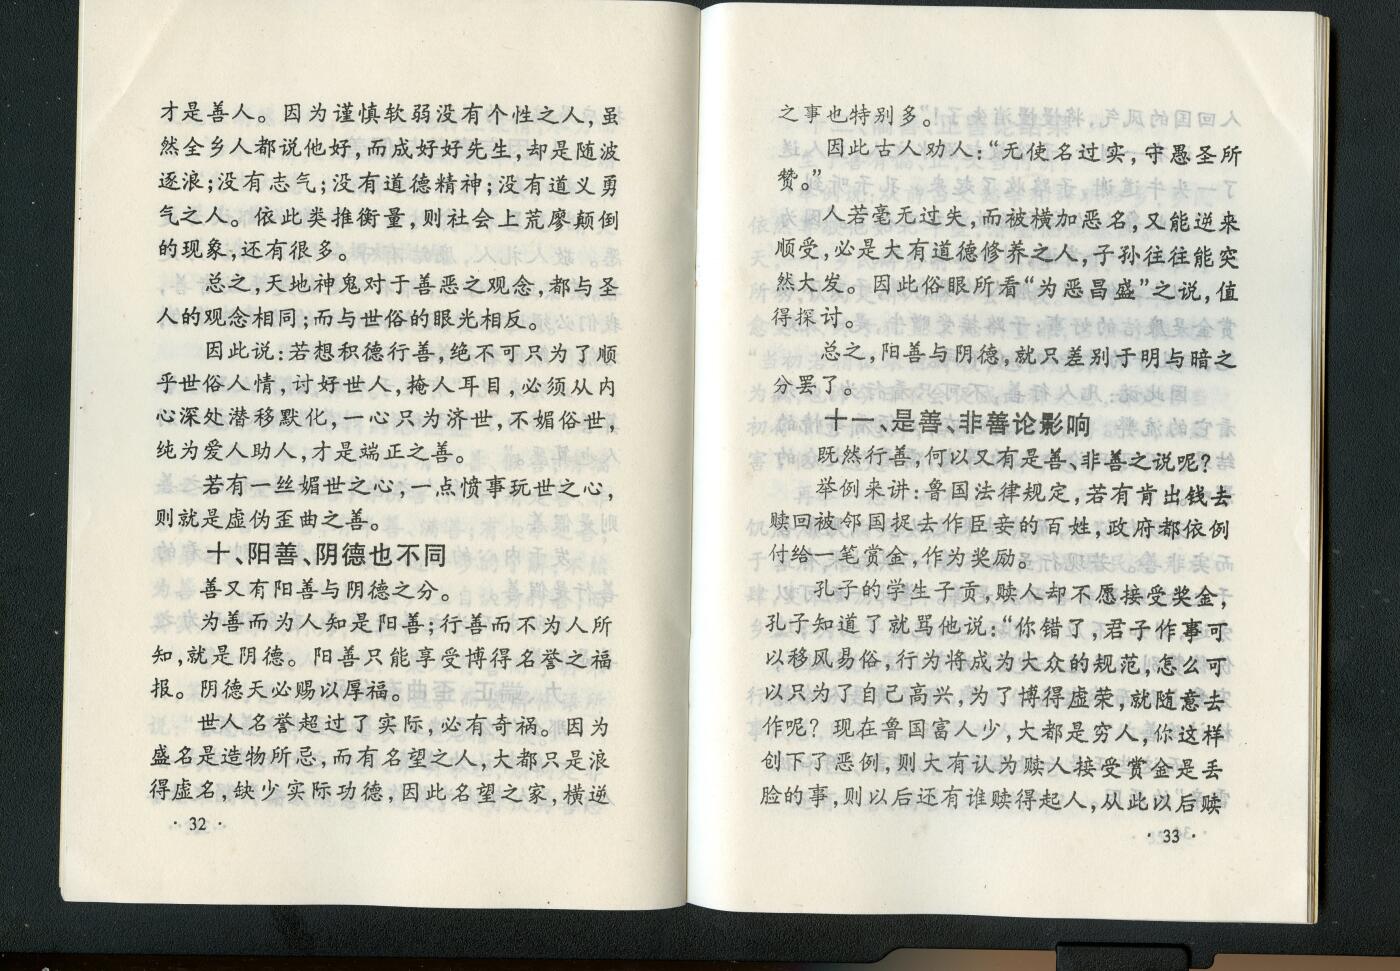 才是善人。因为谨慎软弱没有个性之人，虽
然全乡人都说他好，而成好好先生，却是随波
逐浪；没有志气；没有道德精神；没有道义勇
气之人。依此类推衡量，则社会上荒廖颠倒
的现象，还有很多。
总之，天地神鬼对于善恶之观念，都与圣
人的观念相同；而与世俗的眼光相反。
因此说：若想积德行善，绝不可只为了顺
乎世俗人情，讨好世人，掩人耳目，必须从内
心深处潜移默化，一心只为济世，不媚俗世，
纯为爱人助人，才是端正之善。
若有一丝媚世之心，一点愤事玩世之心，
则就是虚伪歪曲之善。
十、阳善、阴德也不同
善又有阳善与阴德之分。
为善而为人知是阳善；行善而不为人所
知，就是阴德。阳善只能享受博得名誉之福
报。阴德天必赐以厚福。
世人名誉超过了实际，必有奇祸。因为
盛名是造物所忌，而有名望之人，大都只是浪
得虚名，缺少实际功德，因此名望之家，横逆
·32·
之事也特别多。
因此古人劝人：“无使名过实，守愚圣所
赞。”
人若毫无过失，而被横加恶名，又能逆来
顺受，必是大有道德修养之人，子孙往往能突
然大发。因此俗眼所看“为恶昌盛”之说，值
得探讨。
总之，阳善与阴德，就只差别于明与暗之
分罢了。
十一、是善、非善论影响
既然行善，何以又有是善、非善之说呢？
举例来讲：鲁国法律规定，若有肯出钱去
赎回被邻国捉去作臣妾的百姓，政府都依例
付给一笔赏金，作为奖励。
孔子的学生子贡，赎人却不愿接受奖金，
孔子知道了就骂他说：“你错了，君子作事可
以移风易俗，行为将成为大众的规范，怎么可
以只为了自己高兴，为了博得虚荣，就随意去
作呢？现在鲁国富人少，大都是穷人，你这样
创下了恶例，则大有认为赎人接受赏金是丢
脸的事，则以后还有谁赎得起人，从此以后赎
·33·